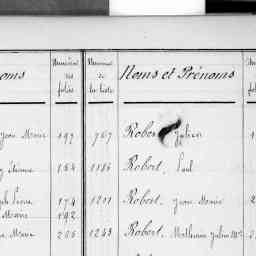 oms Numéros des folios Numéros de la liste Noms et Prénoms
Jean Marie 197 767 Robert Julien
Étienne 164 1186 Robert, Paul
Pierre 174 1211 Robert, Jean Marie
Marie 192
Marie 206 1243 Robert, Mathurin Julien Mie